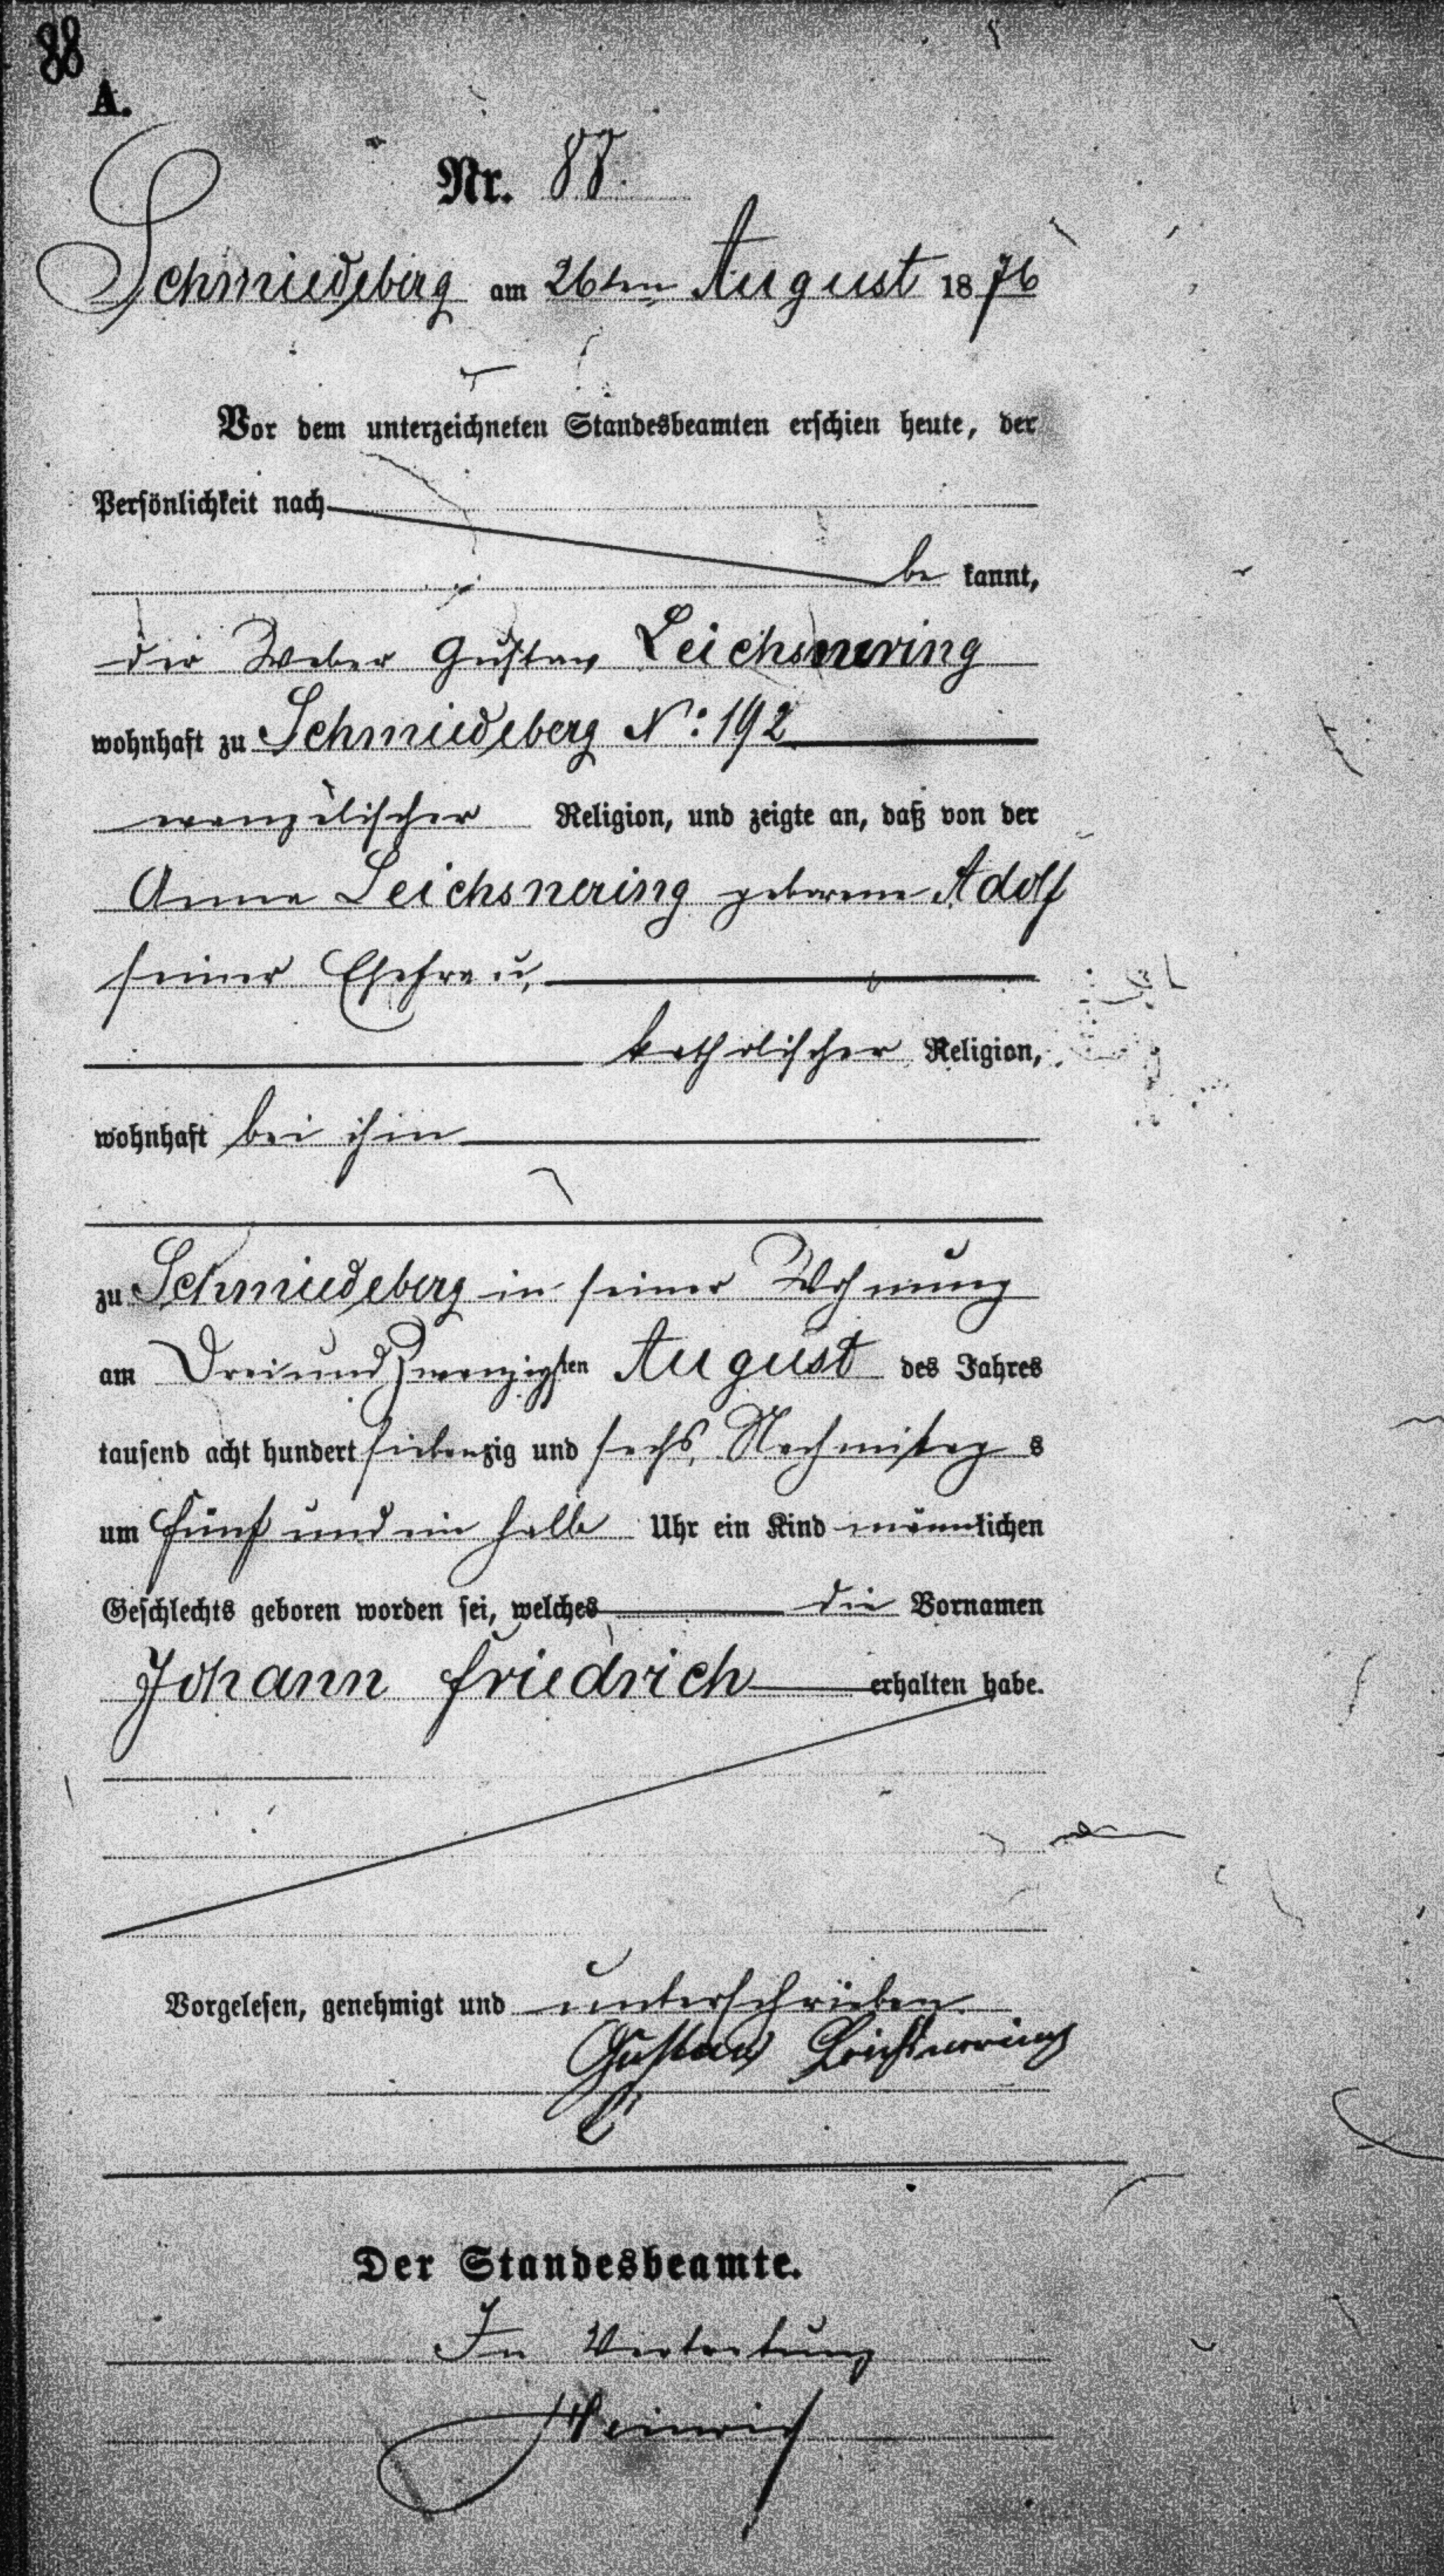 88
A.
Nr. 88.
Schmiedeberg am 26ten August 1876
Vor dem unterzeichneten Standesbeamten erschien heute, der
Persönlichkeit nach
be kannt,
der Weber Gustav Leichsnering
wohnhaft zu Schmiedeberg No: 192
evangelischer Religion, und zeigte an, daß von der
Anna Leichsnering geborene Adolf
seiner Ehefrau,
katholischer Religion,
wohnhaft bei ihm
zu Schmiedeberg in seiner Wohnung
am Dreiundzwanzigsten August des Jahres
tausend acht hundert siebenzig und sechs, Nachmittags
um fünf und ein halb Uhr ein Kind männlichen
Geschlechts geboren worden sei, welches die Vornamen
Johann Friedrich erhalten habe.
Vorgelesen, genehmigt und unterschrieben
Gustav Leichsnering
Der Standesbeamte.
In Vertretung
Heinrich